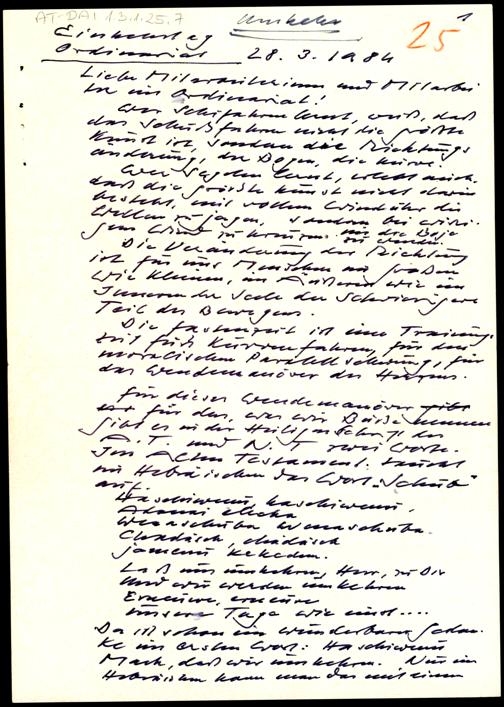 AT-DAI 13.1.25.7
Umkehr
1
25
Einkehrtag
Ordinariat 28.3.1984
Liebe Mitarbeiterinnen und Mitarbei
ter im Ordinariat!
Wer Schifahren lernt, weiß, daß
das Schußfahren nicht die größte
Kunst ist, sondern die Richtungs
änderung, der Bogen, die Kurve.
Wer Segeln lernt, erlebt auch,
daß die größte Kunst nicht darin
besteht, mit vollem Wind über die
Wellen zu jagen, sondern bei widri
gem Wind zu kreuzen um die Boje
zu wenden.
Die Veränderung der Richtung
ist für uns Menschen im großen
wie kleinen, im Äußeren wie im
Inneren der Seele der schwierigere
Teil des Bewegens.
Die Fastenzeit ist eine Trainings
zeit fürs Kurvenfahren, für den
moralischen Parallelschwung, für
das Wendemanöver des Herzens.
Für dieses Wendemanöver gibt
es für das, was wir Buße nennen
gibt es in der Heiligen Schrift des
A.T. und N.T. zwei Worte.
Im Alten Testament: taucht
im Hebräischen das Wort "Schub"
auf.
Haschiwenu, haschiwenu,
Adonai elecha
wenaschuba wenaschuba.
Chadasch, chadasch
jamenu kekedem.
Laß uns umkehren, Herr, zu Dir
und wir werden umkehren
Erneuere, erneuere
unsere Tage wie einst....
Da ist schon ein wunderbarer Gedan
ke im ersten Wort: Haschiwenu
Mach, daß wir umkehren. Nur im
Hebräischen kann man das mit einem